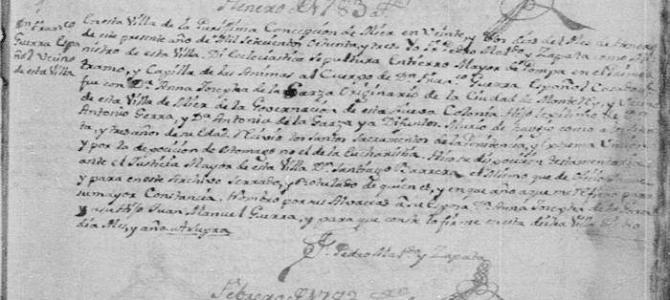 Henero de 1783
Dn Franco
Guerra Espa
ñol Vecino
de esta Villa
En esta Villa de la Purissima Concepcion de Mier en Veinte, y dos dias del Mes de Henero
de este presente año de Mil Setecientos Ochenta, y tres Yo Dn Pedro y Zapata como Mi
nistro de esta Villa Di Ecclesiastica Sepultura Entierro Mayor de Pompa en el
tramo, y Capilla de las Animas al Cuerpo de Dn Franco Guerra Español Casado q
fue con Da Anna Josepha de la Garza Originario de la Ciudad de Monte Rey, y Vecino
de esta Villa de Mier de la Governacion de esta Nueva Colonia Hijo lexitimo de Dn
Antonio Gerra, y Da Antonia de la Garza ya Difuntos. Murio de como a los
ta, y tres años de su Edad. Recivio los Santos Sacramentos de la Penitencia, y Extrema Uncion
y por la deposicion de Estomago no el de la Eucharistia. Hizo su disposicion testamentaria
ante el Justicia Mayor de esta Villa Dn Santiago Barrera el mismo que
y para en este Archivo Serrado, y Rotulado de quien es, y en que año para
su mayor Constancia. Nombro por sus Albaceas a su Esposa Da Anna Josepha de la Garza
y su Hijo Juan Manuel Guerra, y para que conste lo firme en esta dicha Villa
dia Mes, y año Ut Supra
Pedro y Zapata
Febrero de